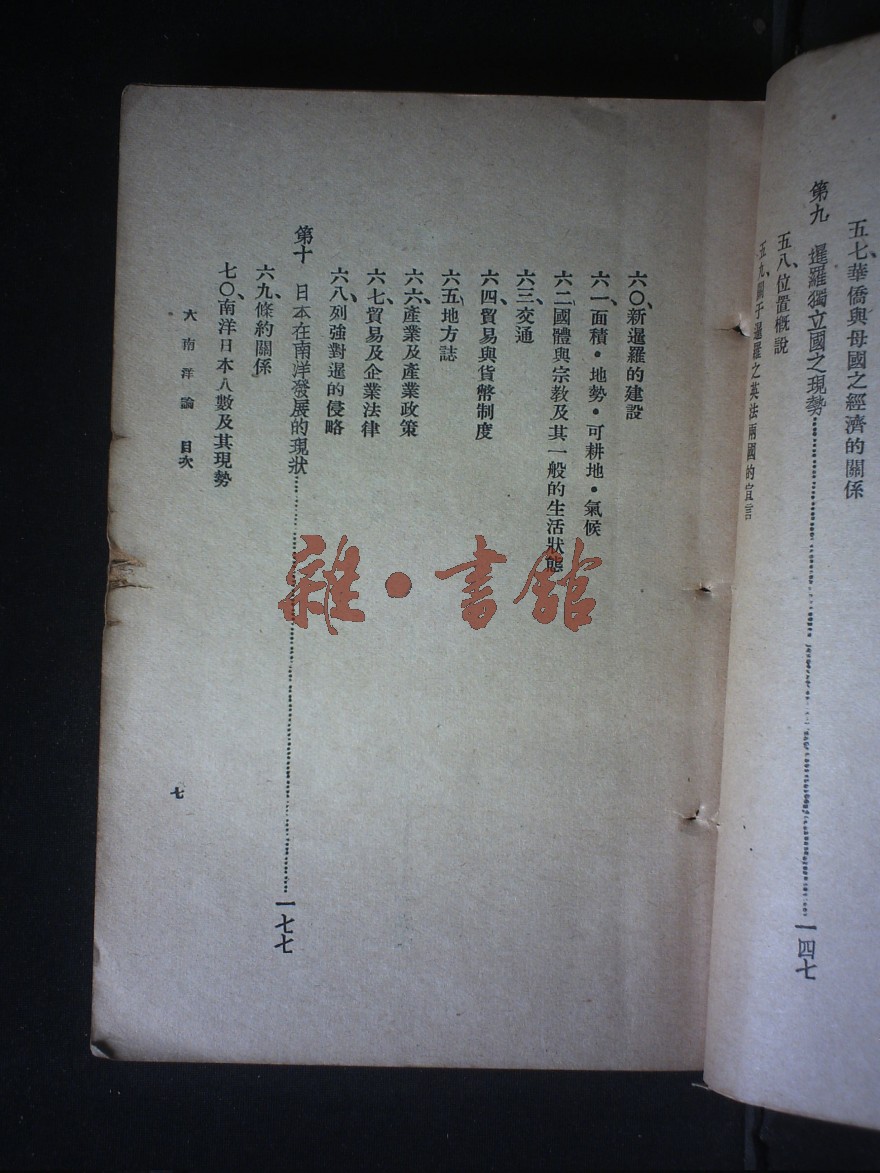 五七、華僑與母國之經濟的關係
第九　暹羅獨立國之現勢……一四七
五八、位置概說
五九、關于暹羅之英法兩國的宣言
六〇、新暹羅的建設
六一、面積・地勢・可耕地・氣候
六二、國體與宗教及其一般的生活狀態
六三、交通
六四、貿易與貨幣制度
六五、地方誌
六六、產業及產業政策
六七、貿易及企業法律
六八、列強對暹的侵略
第十　日本在南洋發展的現狀……一七七
六九、條約關係
七〇、南洋日本人數及其現勢
大南洋論　目次
七
雜・書館